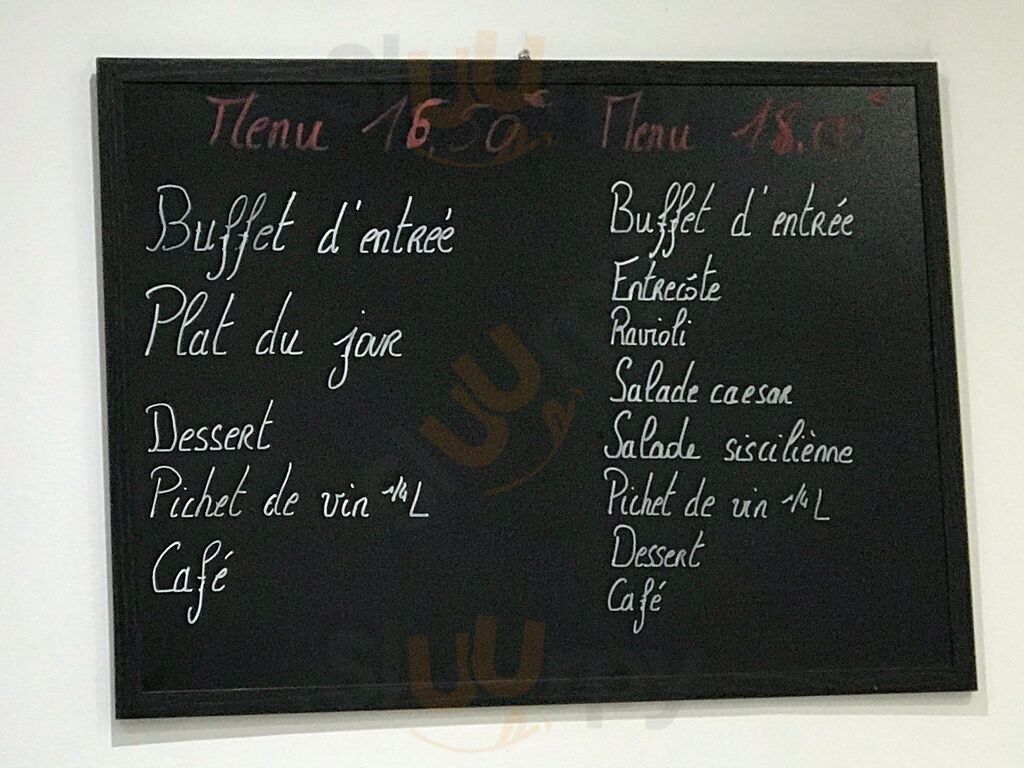 Menu 16,50€
Buffet d'entrée
Plat du jour
Dessert
Pichet de vin 1/4 L
Café
Menu 18.00€
Buffet d'entrée
Entrecôte
Ravioli
Salade caesar
Salade sisciliènne
Pichet de vin 1/4 L
Dessert
Café